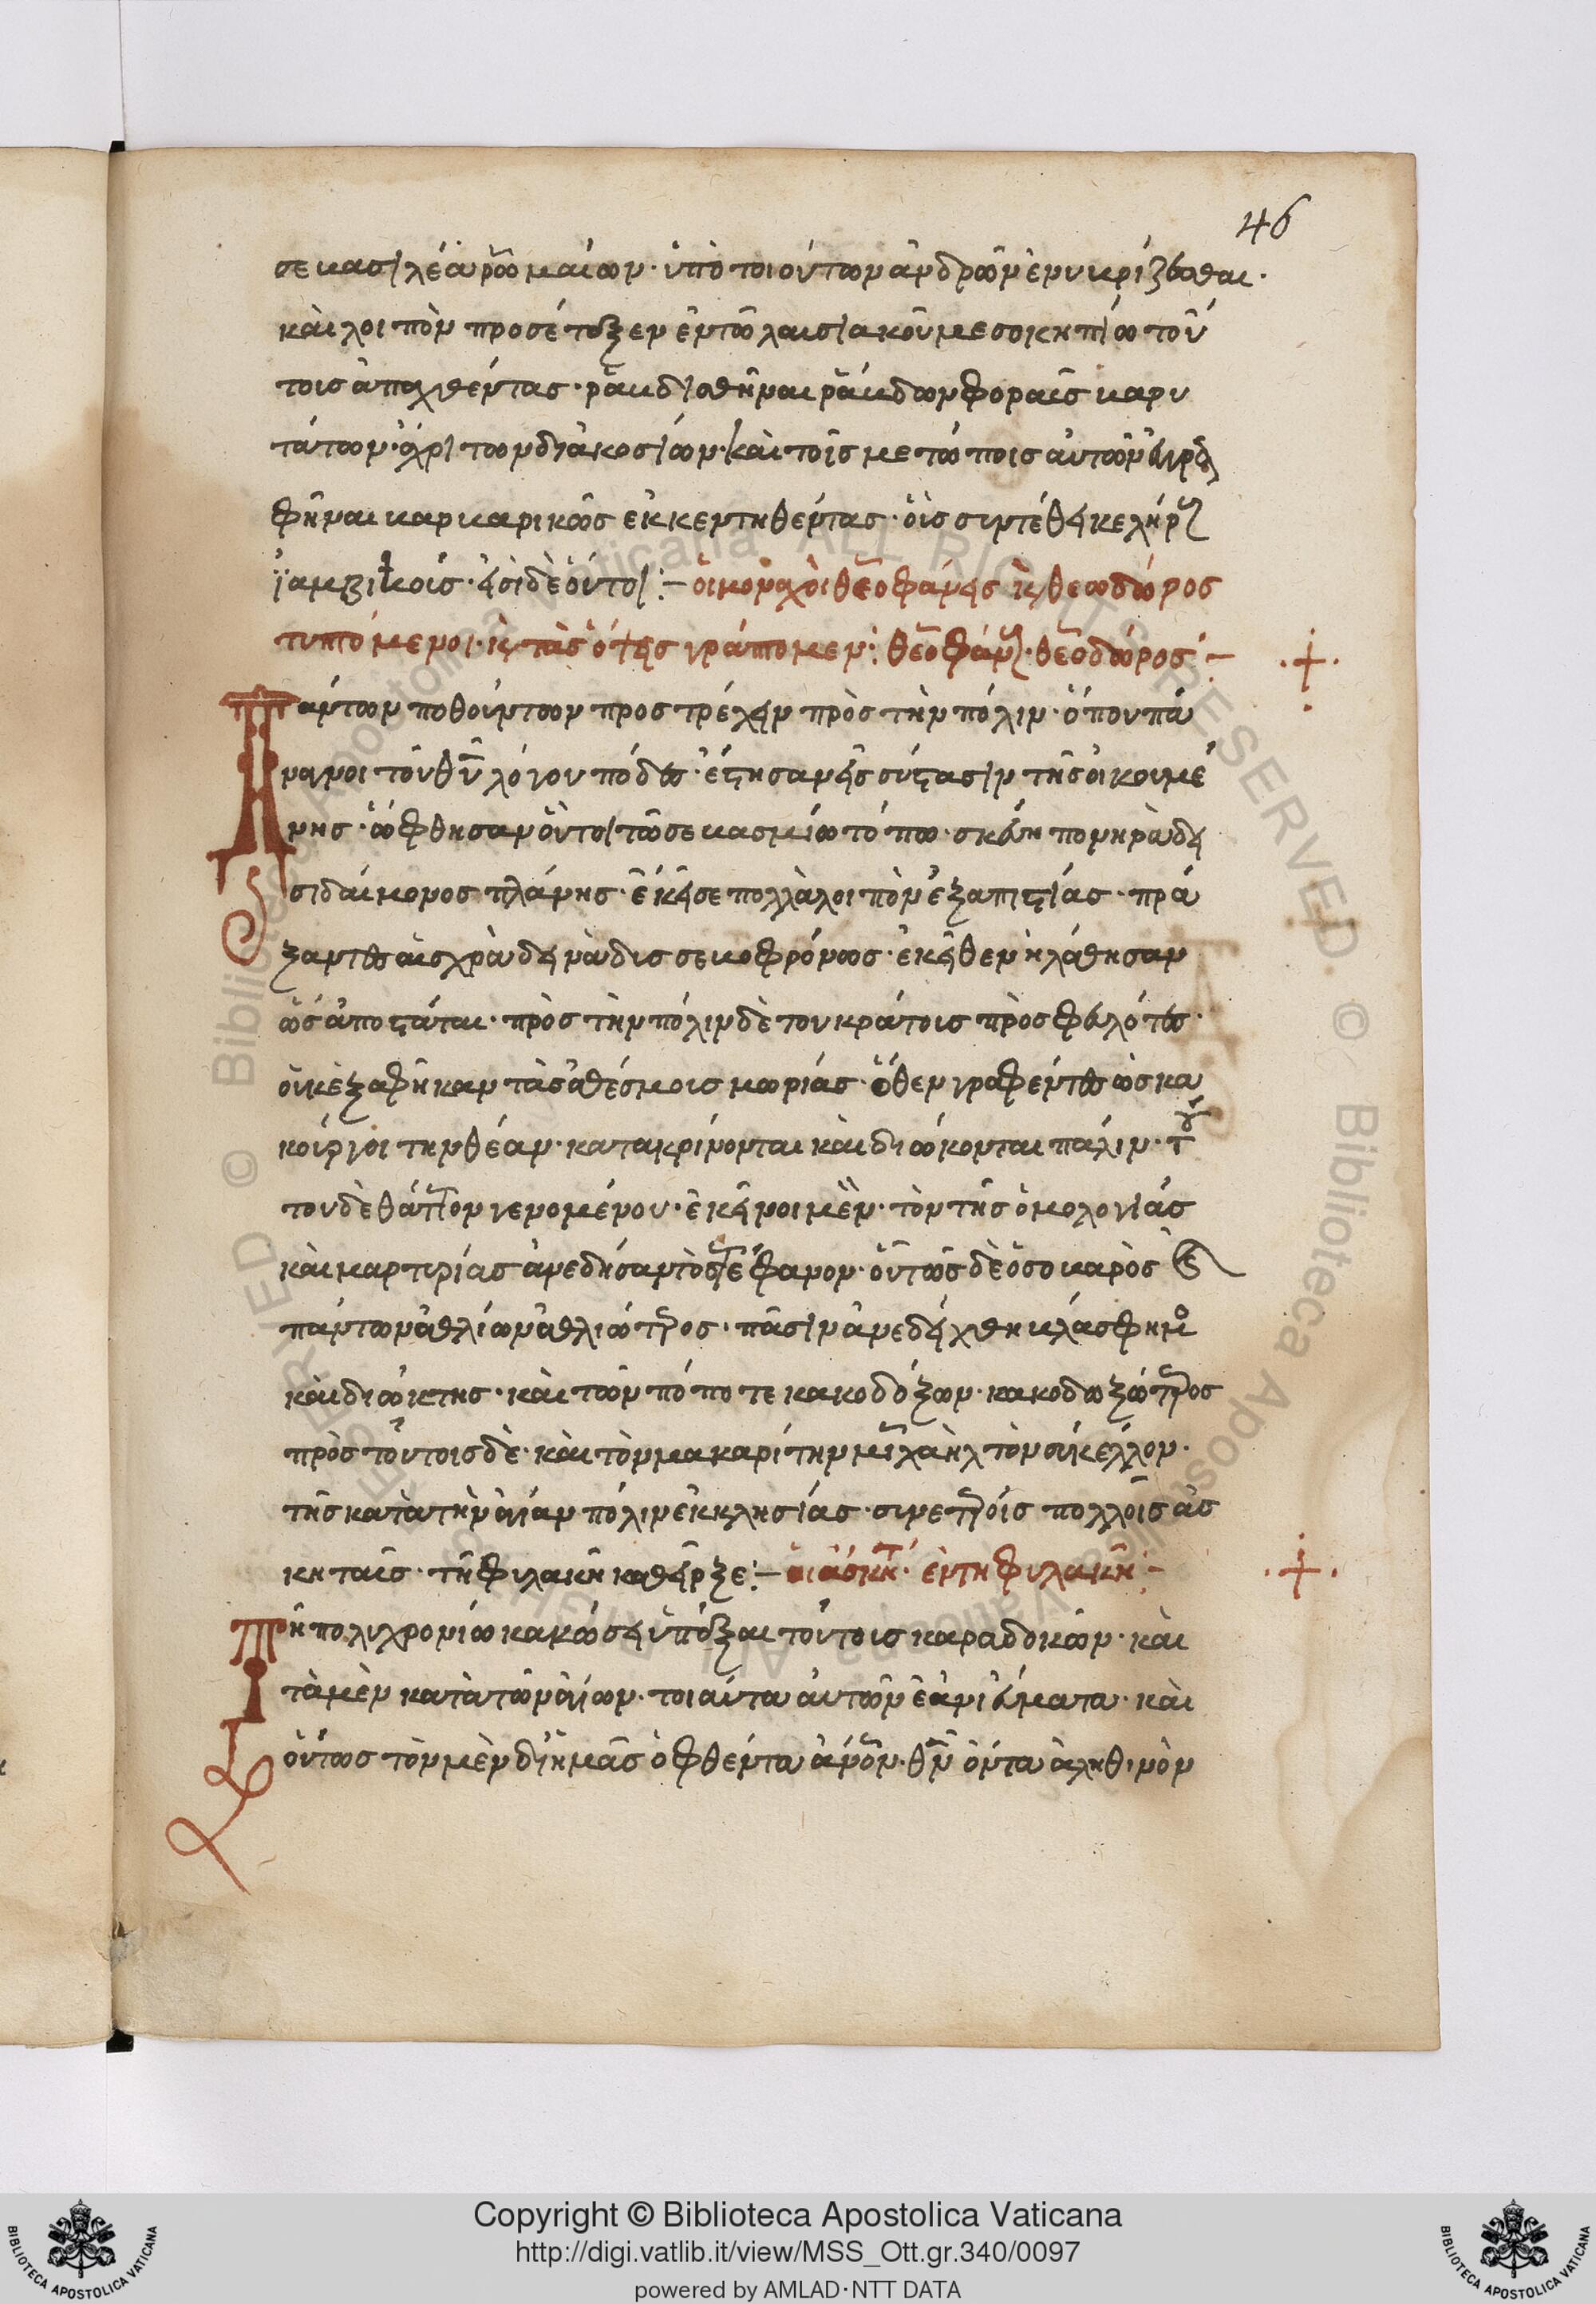 46
σε βασιλέα ῥωμαίων· ὑπὸ τοιούτων ἀνδρῶν ἐνυβρίζεσθαι·
καὶ λοιπὸν προσέταξεν ἐν τῶ λαυσιακοῦ μεσοκηπίω τού
τους ἀπαχθέντας· ῥαβδισθῆναι ῥάβδων φοραῖς βαρυ
τάτων· ἄχρι των διακοσίων· καὶ τοῖς μετώποις αὐτῶν
φῆναι βαρβαρικῶς ἐκκεντηθέντας· οἷς συντέθεικεν
ϊαμβικοῖς· εἰσὶ δὲ οὗτοι :– οἱ μοναχοὶ θεοφάνεις κ(αὶ) θεωδώρος
τυπτόμενοι· κ(αὶ) τὰς ὄψεις γράπτομεν: θεοφάν· θεοδώρος :–
Πάντων ποθούντων προστρέχειν πρὸς τὴν πόλιν· ὅπου πά
ναγνοι τοῦ θυ λόγου πόδες· ἔστησαν εἰς σύστασιν τῆς οἰκουμέ
νης· ὤφθησαν οὗτοι τῶ σεβασμίω τόπω· σκεύη πονηρὰ δει
σιδαίμονος πλάνης· ἐκεῖσε πολλὰ λοιπὸν ἐξ ἀπιστίας· πρά
ξαντες αἰσχρὰ δεινὰ δυσσεβοφρόνως· ἐκεῖθεν ἠλάθησαν
ὡς ἀποστάται· πρὸς τὴν πόλιν δὲ του κράτους πρὸσφευγότες·
οὐκ ἐξαφῆκαν τὰς ἀθέσμους μωρίας· ὅθεν γραφέντες ὡς κα
κούργοι την θέαν· κατακρίνονται καὶ διώκονται πάλιν· τού
του δὲ θάττον γενομένου· ἐκεῖνοι μὲν· τὸν τῆς ὁμολογίας
καὶ μαρτυρίας ἀνεδήσαντο στέφανον· οὗτως δὲ ὁ σοβαρὸς
πάντων ἀθλίων ἀθλιώτερος· πᾶσιν ἀνεδείχθη βλάσφημος
καὶ διώκτης· καὶ τῶν πόποτε κακοδόξων· κακοδωξώτερος
πρὸς τοῦτοις δὲ· καὶ τὸν μακαρίτην μιχαὴλ τὸν σύκελλον·
τῆς κατὰ τὴν ἁγίαν πόλιν ἐκκλησίας· συν ἑτέροις πολλοῖς ἀσ
κηταῖς· τῆ φυλακῆ καθεῖρξε :– οἱ ἀσκητ· ἐν τη φυλακῆ :–
Τῆ πολυχρονίω κακώσει ὑπόξαι τούτοις καραδοκῶν· καὶ
τὰ μὲν κατὰ τῶν ἁγίων· τοιαύτα αὐτῶν ἐανιεύματα· καὶ
οὕτως τὸν μὲν δι' ἡμᾶς ὀφθέντα ἀνον· θν ὄντα ἀληθινὸν
Copyright © Biblioteca Apostolica Vaticana
http://digi.vatlib.it/view/MSS_Ott.gr.340/0097
powered by AMLAD·NTT DATA